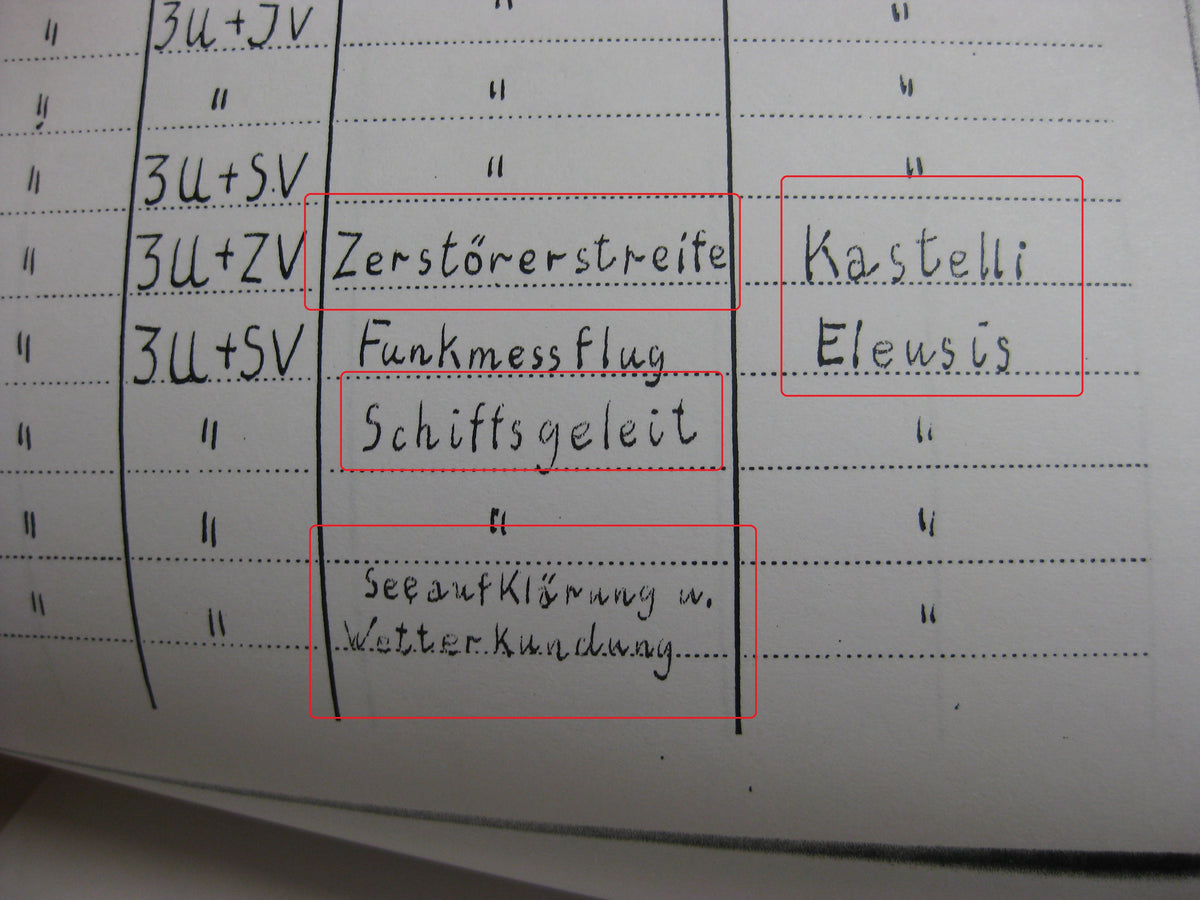 " 3U+JV " "
" " " "
" 3U+S.V " "
" 3U+ZV Zerstörerstreife Kastelli
" 3U+SV Funkmessflug Eleusis
" " Schiffsgeleit "
" " " "
" " Seeaufklärung u. "
Wetterkundung